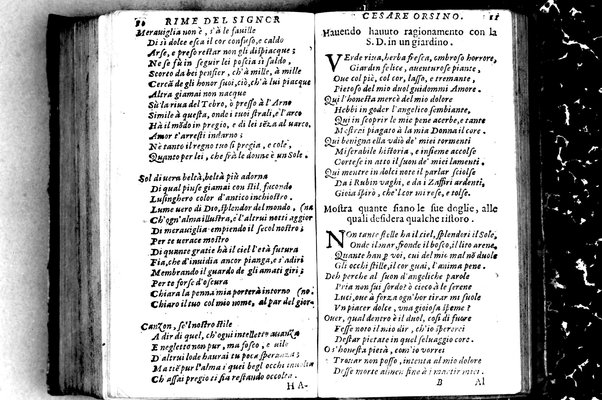 10 RIME DEL SIGNOR
Meraviglia non è, s'à le fauille
Di sì dolce esca il cor confuso, e caldo
Arse, e preso restar non gli dispiacque;
Ne se fù in seguir lei poscia sì saldo,
Scorto da bei pensier, ch'à mille, à mille
Cercã de gli honor suoi, ciò, ch'à lui piacque
Altra giamai non nacque
Sù la riua del Tebro, ò presso à l'Arno
Simile à questa, onde i suoi strali, e l'arco
Hà il mõdo in pregio, e di lei sẽza al uarco,
Amor t'arresti indarno;
Nè tanto il regno tuo si pregia, e cole,
Quanto per lei, che frà le donne è un Sole.
Sol di uera beltà, beltà più adorna
Di qual piuse giamai con stil, facondo
Lusinghero color d'antico inchiostro.
Lume uero di Dio, splendor del mondo,
Ch'ogn'alma illustra, e l'altrui notti aggior (na
Di merauiglia empiendo il secol nostro;
Per te uerace mostro
Di quante gratie hà il ciel l'età futura
Fia, che d'inuidia ancor pianga, e s'adiri
Membrando il guardo de gli amati giri;
Per te forse d'oscura
Chiara la penna mia porterà intorno (no.
Chiaro il tuo col mio nome, al par del gior-
Canzon, se'l nostro stile
A dir di quel, ch'ogni intelletto auanza
E negletto non pur, ma fosco, e uile
D'altrui lode haurai tu poca speranza;
Ma se'l pur l'alma i quei begl'occhi inuolta
Ch'assai pregio ti fia restando occolta.
HA-
CESARE ORSINO. 11
Hauendo hauuto ragionamento con la
S. D. in un giardino.
VErde riua, herba fresca, ombroso horrore,
Giardin felice, auenturose piante,
Oue col piè, col cor, lasso, e tremante,
Pietoso del mio duol guidommi Amore.
Qui l'honesta mercè del mio dolore
Hebbi in goder l'angelico sembiante,
Qui in scoprir le mie pene acerbe, e tante
Mostrai piagato à la mia Donna il core.
Qui benigna ella vdio de' miei tormenti
Miserabile historia, e insieme accolse
Cortese in atto il suon de' miei lamenti.
Qui mentre in dolci note il parlar sciolse
Da i Rubin vaghi, e da i Zaffiri ardenti,
Gioia spirò, che'l cor mi rese, e tolse.
Mostra quante siano le sue doglie, alle
quali desidera qualche ristoro.
NOn tante stelle hà il ciel, splendori il Sole,
Onde il mar, fronde il bosco, il lito arene,
Quante han p voi, cui del mio mal nõ duole
Gli occhi stille, il cor guai, l'anima pene.
Deh perche al suon d'angeliche parole
Pria non fur sordo? e cieco à le serene
Luci, oue à forza ogn'hor tirar mi suole
Vn piacer dolce, vna gioiosa speme?
Ouer, qual duro diamante, ò dolce, così di fuore
Fesse noto il mio dir, ch'io spererei
Destar pietate in quel seluaggio core.
O s'honesta pietà, com'io vorrei
Trouar non posso, intenta al mio dolore
Desse morte almen fine à i martiri miei.
B Al